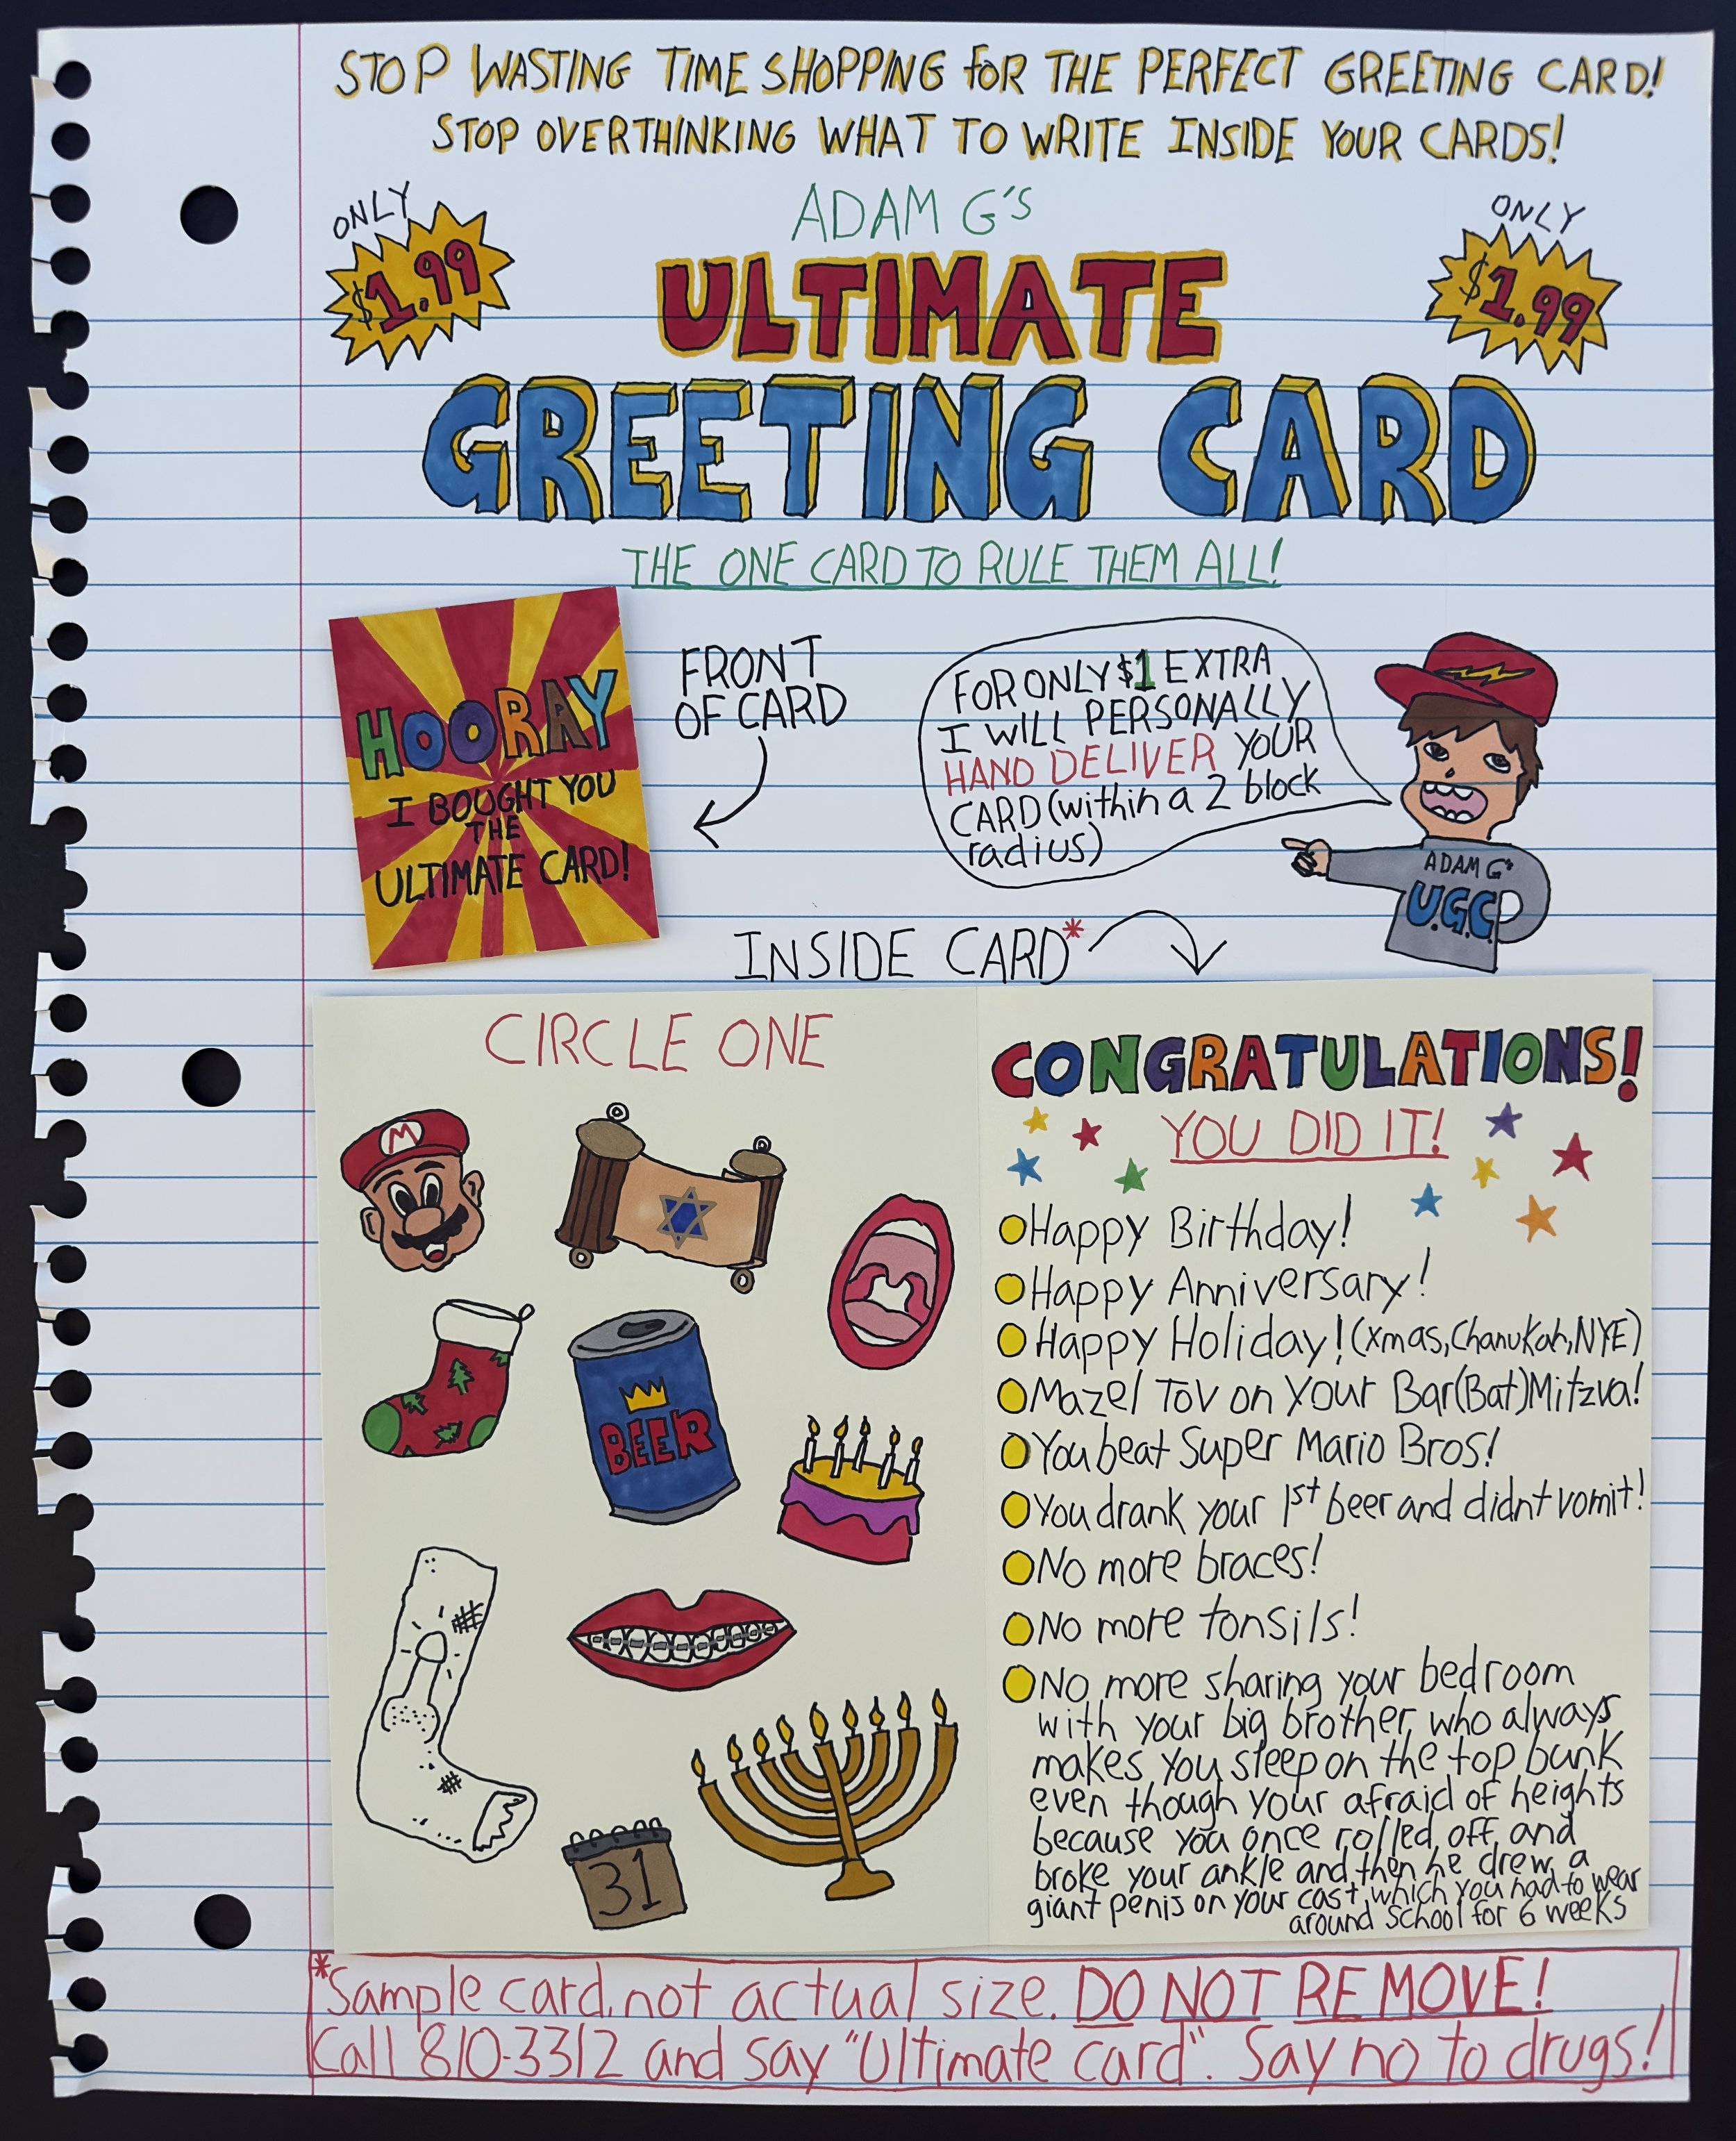 STOP WASTING TIME SHOPPING FOR THE PERFECT GREETING CARD!
STOP OVERTHINKING WHAT TO WRITE INSIDE YOUR CARDS!
ONLY
$1.99
ADAM G'S
ULTIMATE
GREETING CARD
ONLY
$1.99
THE ONE CARD TO RULE THEM ALL!
HOORAY
I BOUGHT YOU
THE
ULTIMATE CARD!
FRONT
OF CARD
FOR ONLY $1 EXTRA
I WILL PERSONALLY
HAND DELIVER YOUR
CARD (within a 2 block
radius)
ADAM G's
U.G.C.
INSIDE CARD*
CIRCLE ONE
M
BEER
31
CONGRATULATIONS!
YOU DID IT!
Happy Birthday!
Happy Anniversary!
Happy Holiday! (xmas, Chanukah, NYE)
Mazel Tov on your Bar(Bat)Mitzva!
You beat Super Mario Bros!
You drank your 1st beer and didnt vomit!
No more braces!
No more tonsils!
No more sharing your bedroom
with your big brother, who always
makes you sleep on the top bunk
even though your afraid of heights
because you once rolled off and
broke your ankle and then he drew a
giant penis on your cast, which you had to wear
around school for 6 weeks
*Sample card, not actual size. DO NOT REMOVE!
Call 810-3312 and say "Ultimate card". Say no to drugs!